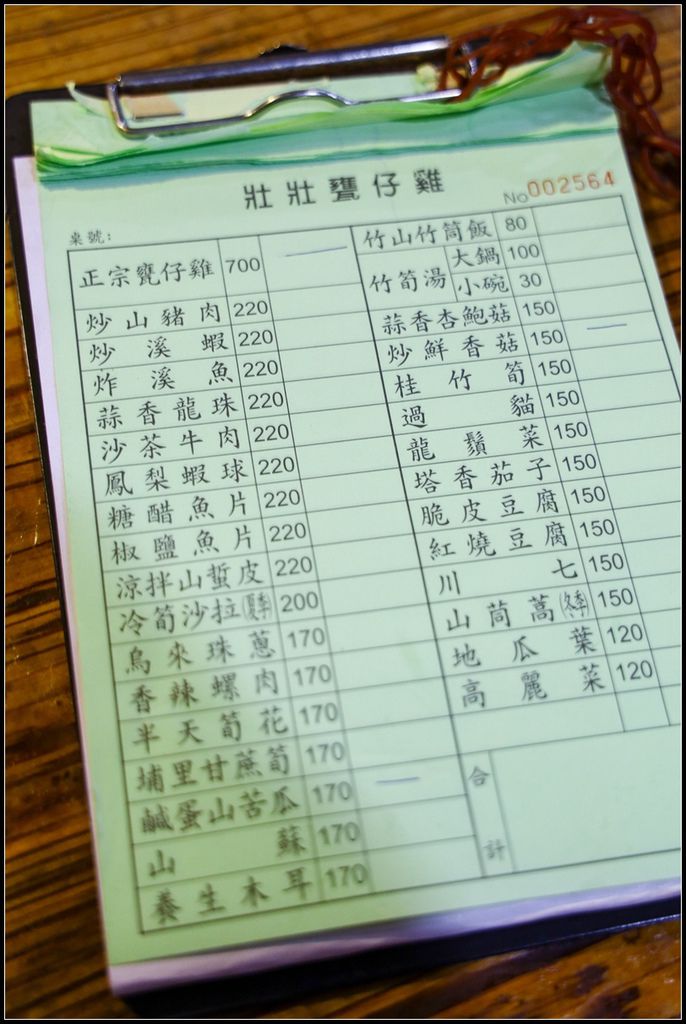 壯壯甕仔雞
No 002564
桌號:
正宗甕仔雞 700
炒山豬肉 220
炒溪蝦 220
炸溪魚 220
蒜香龍珠 220
沙茶牛肉 220
鳳梨蝦球 220
糖醋魚片 220
椒鹽魚片 220
涼拌山蜇皮 220
冷筍沙拉(夏季) 200
烏來珠蔥 170
香辣螺肉 170
半天筍花 170
埔里甘蔗筍 170
鹹蛋山苦瓜 170
山蘇 170
養生木耳 170
竹山竹筒飯 80
竹筍湯 大鍋 100
小碗 30
蒜香杏鮑菇 150
炒鮮香菇 150
桂竹筍 150
過貓 150
龍鬚菜 150
塔香茄子 150
脆皮豆腐 150
紅燒豆腐 150
川七 150
山茼蒿(冬季) 150
地瓜葉 120
高麗菜 120
合計